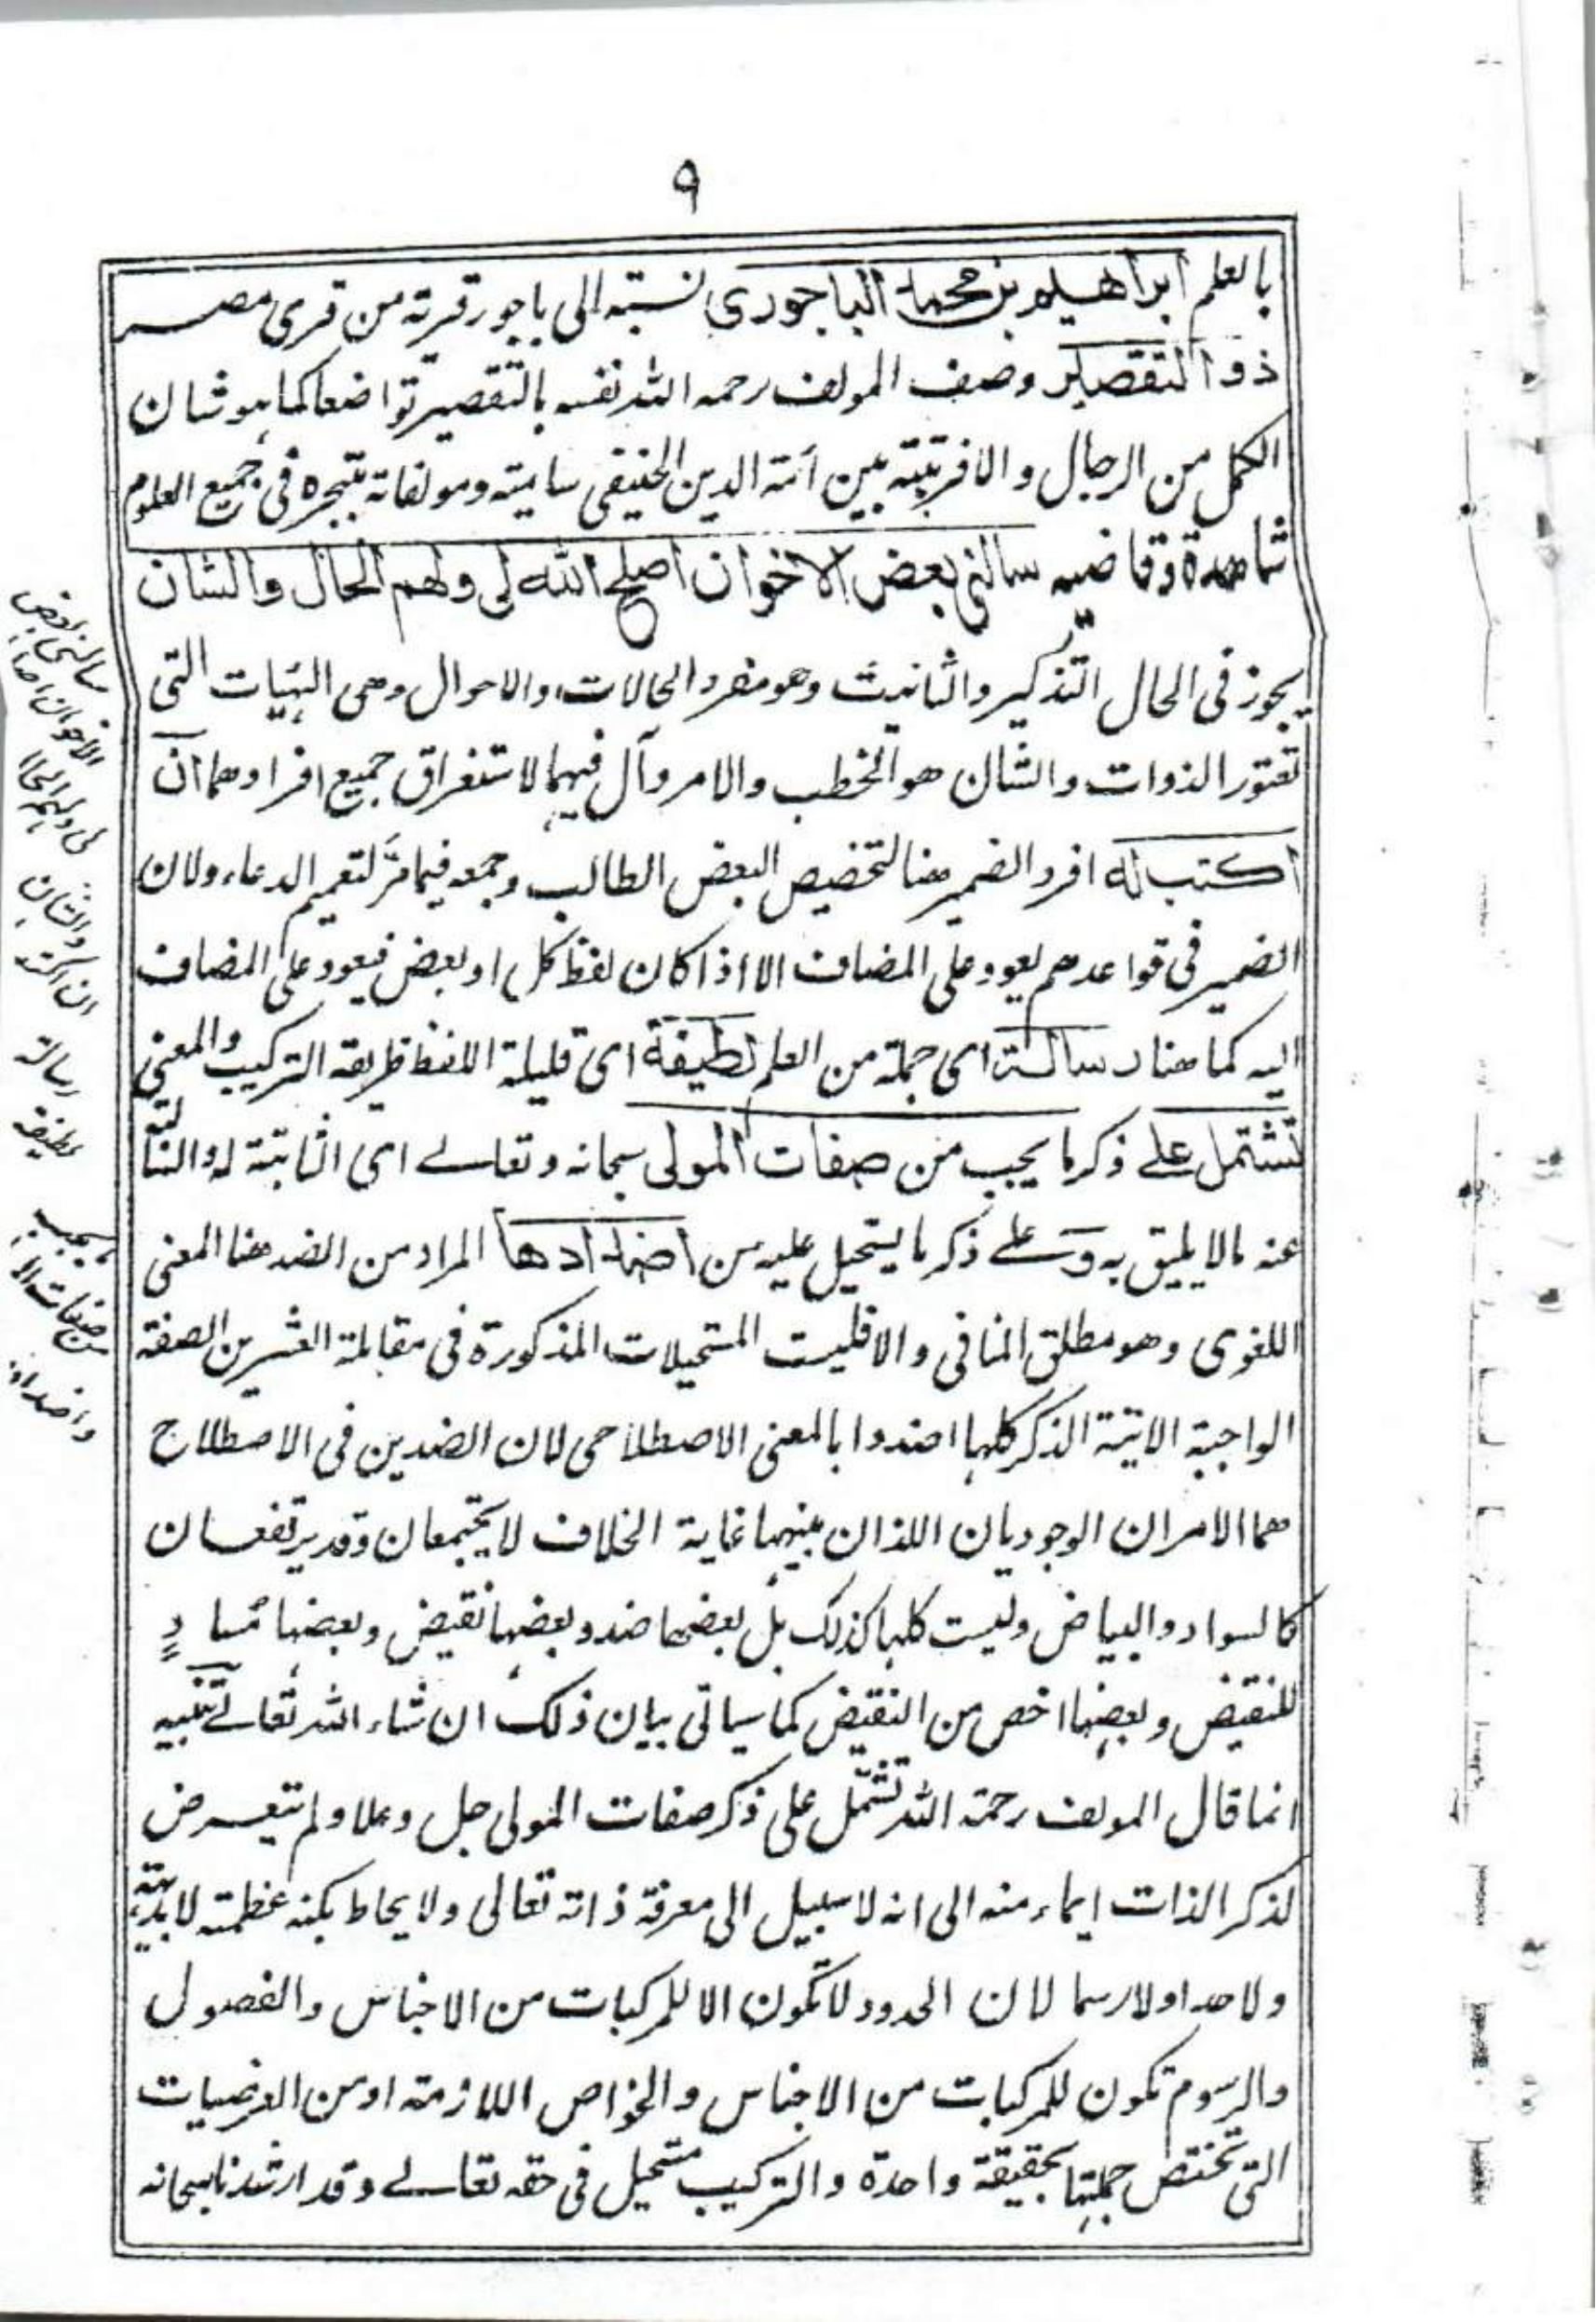 ٩
بالعلم ابراهيم بن محمد الباجوري نسبته الى باجور قرية من قرى مصر
ذو التقصير وصف المولف رحمه الله نفسه بالتقصير تواضعا كما هو شان
الكمل من الرجال والا فرتبته بين ائمة الدين الحنيفى سامية ومولفاته بتبحره فى جميع العلوم
شاهدة وقاضية سالنى بعض الاخوان اصلح الله لى ولهم الحال والشان
يجوز فى الحال التذكير والتانيث وهو مفرد الحالات والاحوال وهى الهئات التى
تعتور الذوات والشان هو الخطب والامر وآل فيهما لاستغراق جميع افرادهما ان
اكتب له افرد الضمير هنا لتخصيص البعض الطالب وجمعه فيما مرّ لتعميم الدعاء ولان
الضمير فى قواعدهم يعود على المضاف الا اذا كان لفظ كل او بعض فيعود على المضاف
اليه كما هنا رسالة اى جملة من العلم لطيفة اى قليلة اللفظ ظريفة التركيب والمعنى
تشتمل على ذكر ما يجب من صفات المولى سبحانه وتعالى اى الثابتة له
عنه مالا يليق به وَعلى ذكر ما يستحيل عليه من اضدادها المراد من الضد هنا المعنى
اللغوى وهو مطلق المنافى والا فليست المستحيلات المذكورة فى مقابلة العشرين الصفة
الواجبة الاتية الذكر كلها اضدوا بالمعنى الاصطلاحى لان الضدين فى الاصطلاح
هما الامران الوجوديان اللذان بينهما غاية الخلاف لا يجتمعان وقد يرتفعان
كالسواد والبياض وليست كلها كذلك بل بعضها ضد وبعضها نقيض وبعضها مُساوٍ
للنقيض وبعضها اخص من النقيض كما سياتى بيان ذلك ان شاء الله تعالى تنبيه
انما قال المولف رحمة الله تشتمل على ذكر صفات المولى جل وعلا ولم يتعرض
لذكر الذات ايماء منه الى انه لا سبيل الى معرفة ذاته تعالى ولا يحاط بكنه عظمته لا بديهة
ولا حدا ولا رسما لان الحدود لا تكون الا للمركبات من الاجناس والفصول
والرسوم تكون للمركبات من الاجناس والخواص اللازمة او من العرضيات
التى تختص جملتها بحقيقة واحدة والتركيب مستحيل فى حقه تعالى وقد ارشدنا سبحانه
سالنى بعض
الاخوان
لى ولهم الحال
والشان
ان اكتب
رسالة
لطيفة
ما يجب
من صفات
واضداد